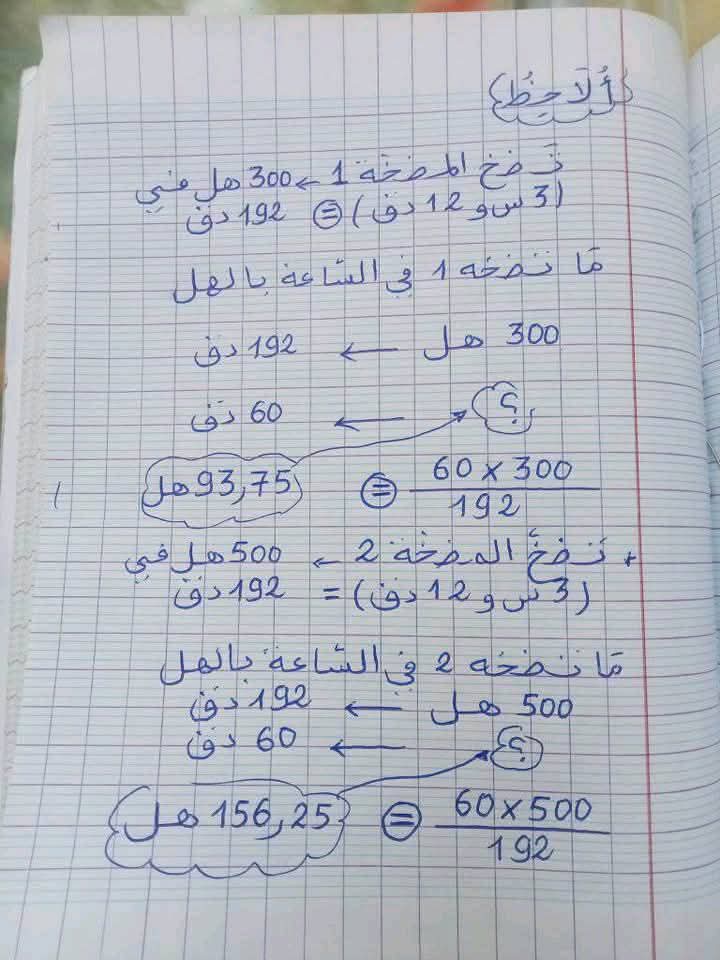 أُلَاحِظُ
تَضخ المضخة 1 ← 300 هل في
(3 س و 12 دق) = 192 دق
مَا تضخه 1 في السّاعة بالهل
300 هل ← 192 دق
؟ ← 60 دق
60 × 300 / 192 = 93,75 هل
+ تَضخُّ المضخة 2 ← 500 هل في
(3 س و 12 دق) = 192 دق
مَا تضخه 2 في السّاعة بالهل
500 هل ← 192 دق
؟ ← 60 دق
60 × 500 / 192 = 156,25 هل